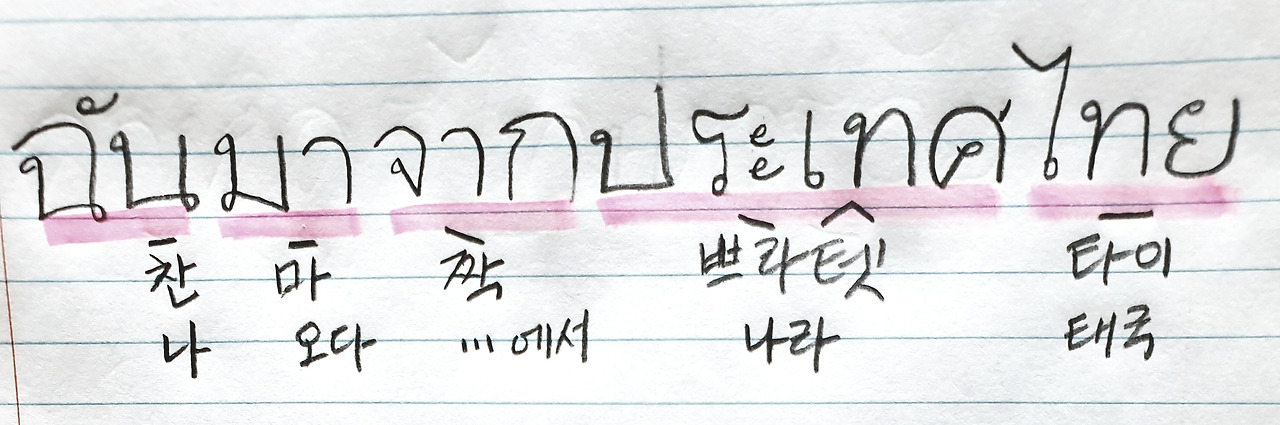 ฉันมาจากประเทศไทย
찬 마 짝 쁘라텟 타이
나 오다 ...에서 나라 태국